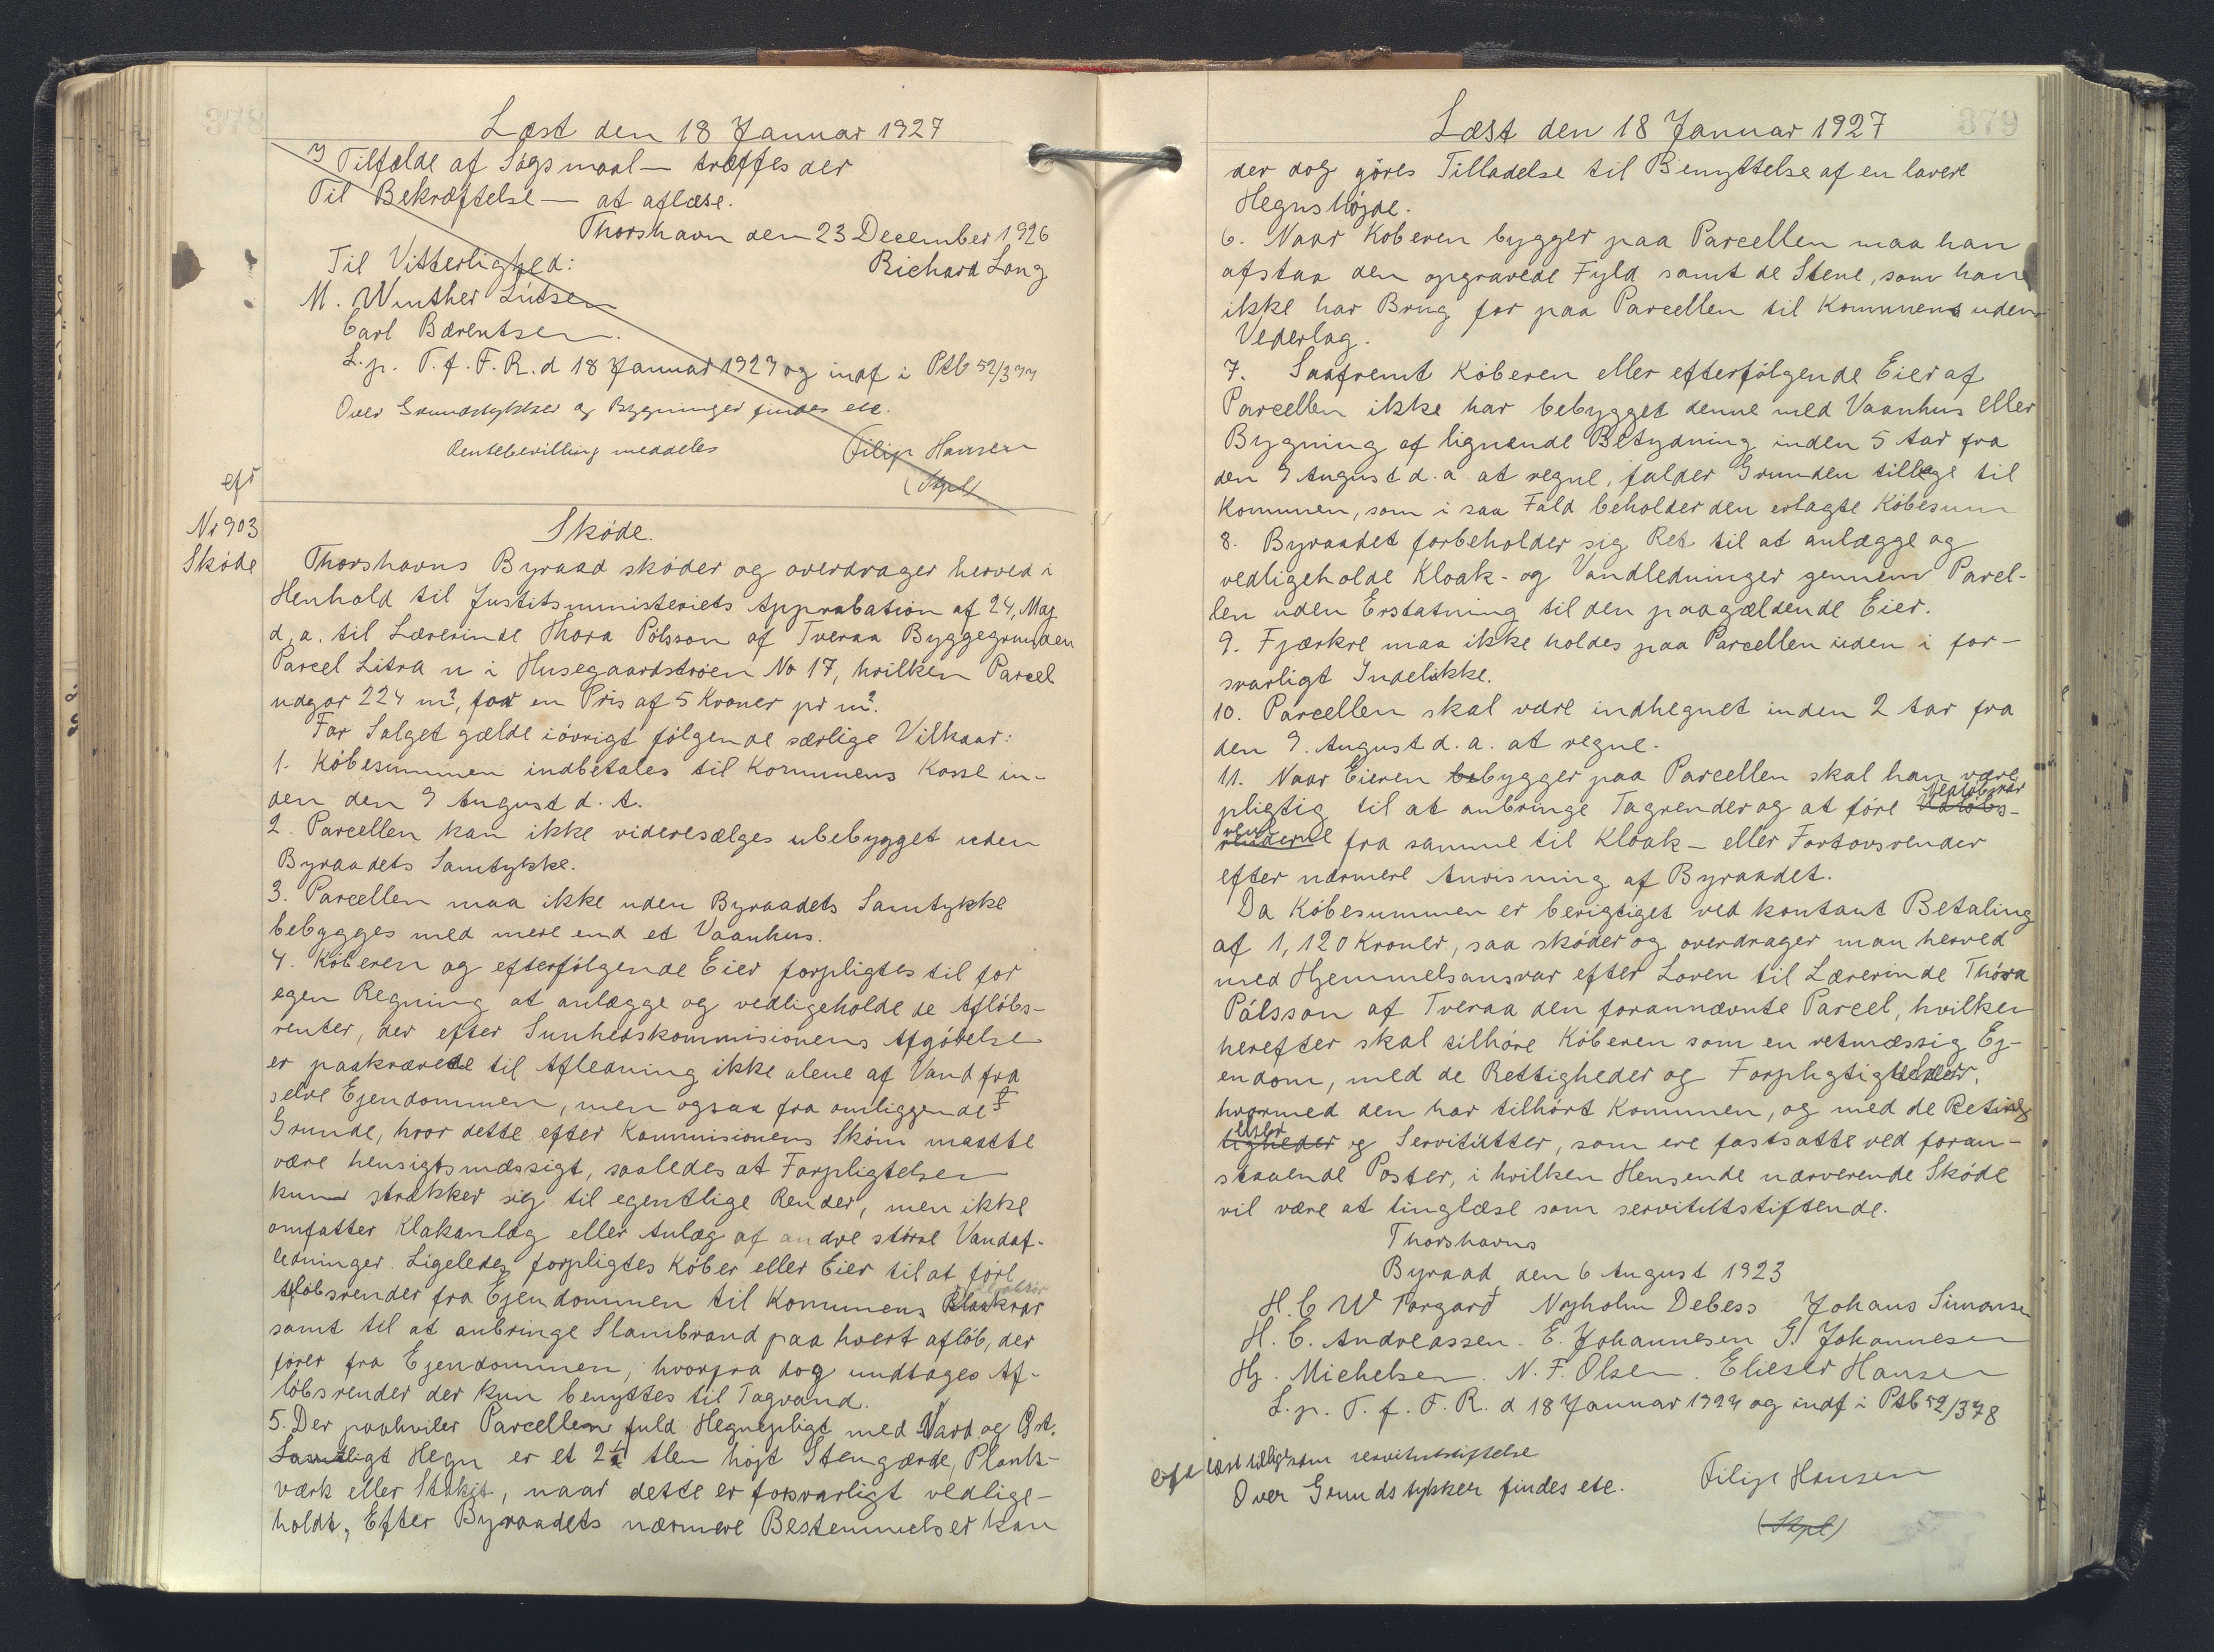 378
Læst den 18 Januar 1927
I Tilfælde af Søgsmaal — træffes der
Til Bekræftelse — at aflæse.
Thorshavn den 23 December 1926
Til Vitterlighed:
Richard Long
M. Winther Lützen
Carl Bærentsen.
L. p. T. f. F. R. d 18 Januar 1927 og indf i Ptb 52/377
Over Grundstykker og Bygninger findes etc.
Rentebevilling meddeles
Filip Hansen
(Stpl)
eft
Nr 903
Skøde
Skøde.
Thorshavns Byraad skøder og overdrager herved i
Henhold til Justitsministeriets Approbation af 24, Maj
d. a. til Lærerinde Thora Pólsson af Tveraa Byggegrunden
Parcel Litra n i Husegaardstrøen No 17, hvilken Parcel
udgør 224 m², for en Pris af 5 Kroner pr m².
For Salget gælde iøvrigt følgende særlige Vilkaar:
1. Købesummen indbetales til Kommunens Kasse in-
den den 9 August d. A.
2. Parcellen kan ikke videresælges ubebygget uden
Byraadets Samtykke.
3. Parcellen maa ikke uden Byraadets Samtykke
bebygges med mere end et Vaanhus.
4. Køberen og efterfølgende Eier forpligtes til for
egen Regning at anlægge og vedligeholde de Afløbs-
renter, der efter Sunhedskommisionens Afgørelse
er paakrævede til Afledning ikke alene af Vand fra
selve Ejendommen, men ogsaa fra omliggende
Grunde, hvor dette efter Kommisionens Skøn maatte
være hensigtsmæssigt, saaledes at Forpligtelsen
kun strækker sig til egentlige Render, men ikke
omfatter Klakanlæg eller Anlæg af andre større Vandaf-
ledninger. Ligeledes forpligtes Køber eller Eier til at føre
Afløbsrender fra Ejendommen til Kommunens Kloakrør
samt til at anbringe Slambrønd paa hvert afløb, der
fører fra Ejendommen, hvorfra dog undtages Af-
løbsrender der kun benyttes til Tagvand.
5. Der paahviler Parcellen fuld Hegnspligt mod Nord og Øst.
Samtligt Hegn er et 2½ Alen højt Stengærde, Plank-
værk eller Stakit, naar dette er forsvarligt vedlige-
holdt. Efter Byraadets nærmere Bestemmelser kan
379
Læst den 18 Januar 1927
der dog gøres Tilladelse til Benyttelse af en lavere
Hegnshøjde.
6. Naar Køberen bygger paa Parcellen maa han
afstaa den opgravede Fyld samt de Stene, som han
ikke har Brug for paa Parcellen til Kommunen uden
Vederlag.
7. Saafremt Køberen eller efterfølgende Eier af
Parcellen ikke har bebygget denne med Vaanhus eller
Bygning af lignende Betydning inden 5 Aar fra
den 9 August d. a at regne, falder Grunden tillage til
Kommunen, som i saa Fald beholder den erlagte Købesum
8. Byraadet forbeholder sig Ret til at anlægge og
vedligeholde Kloak- og Vandledninger gennem Parcel-
len uden Erstatning til den paagældende Eier.
9. Fjærkre maa ikke holdes paa Parcellen uden i for-
svarligt Indelukke.
10. Parcellen skal være indhegnet inden 2 Aar fra
den 9. August d. a. at regne.
11. Naar Eieren bebygger paa Parcellen skal han være
pligtig til at anbringe Tagrender og at føre Nedløbsrør Udløbs-
renderne fra samme til Kloak- eller Fortovsrender
efter nærmere Anvisning af Byraadet.
Da Købesummen er berigtiget ved kontant Betaling
af 1,120 Kroner, saa skøder og overdrager man herved
med Hjemmelsansvar efter Loven til Lærerinde Thóra
Pálsson af Tveraa den forannævnte Parcel, hvilken
herefter skal tilhøre Køberen som en retmæssig Ej-
endom, med de Rettigheder og Forpligtigheder,
hvormed den har tilhørt Kommunen, og med de Beting
elser ligheder og Servitutter, som ere fastsatte ved foran-
staaende Poster, i hvilken Hensende nærverende Skøde
vil være at tinglæse som servitutstiftende.
Thorshavns
Byraad den 6 August 1923
H. C W Torgarð Nyholm Debess Johans Simonsen
H. C. Andreassen. E. Johannesen G. Johannesen
Hj. Michelsen. N. F. Olsen. Elieser Hansen
L. p. T. f. F. R. d 18 Januar 1927 og indf i Ptb 52/378
eft læst tillige som servitutstiftelse
Over Grundstykker findes etc.
Filip Hansen
(Stpl)